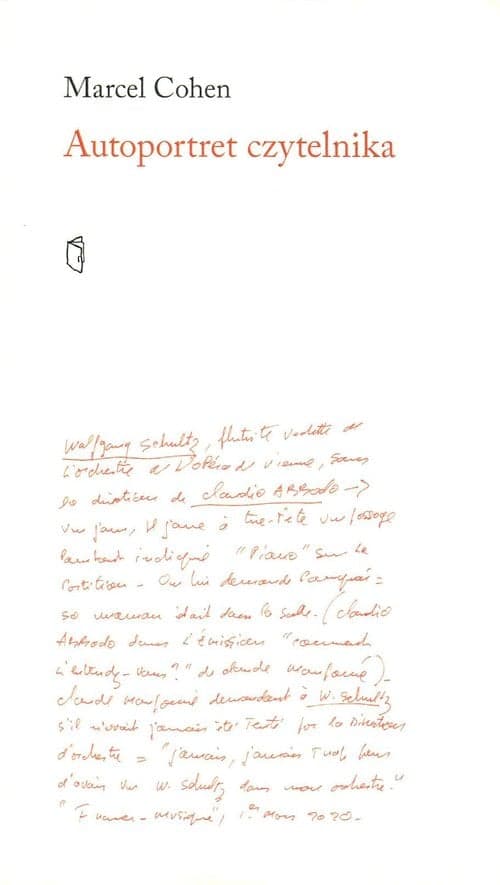 Marcel Cohen
Autoportret czytelnika
Wolfgang Schultz, flûtiste vedette de
L'orchestre de l'Opéra de Vienne, sous
la direction de Claudio ABBADO →
un jour, il joue à tue-tête un passage
pourtant indiqué "Piano" sur la
Partition – On lui demande Pourquoi =
sa maman était dans la salle. (Claudio
ABBADO dans l'émission "comment
l'entendez-vous ?" de claude Maupomé)_
claude Maupomé demandant à W. Schultz
s'il n'avait jamais été Tenté par la Direction
d'orchestre = "jamais, jamais
d'avoir un W. Schultz dans mon orchestre."
"France-musique", 1er Mars 2020-